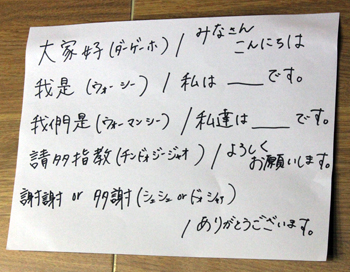 大家好(ダーゲーホ) / みなさん
こんにちは
我是(ウォーシー) / 私は ___ です。
我們是(ウォーマンシー) / 私達は ___ です。
請多指教(チンドゥオジージャオ) / よろしく
お願いします。
謝謝 or 多謝(シェシェ or ドォシャ)
/ ありがとうございます。